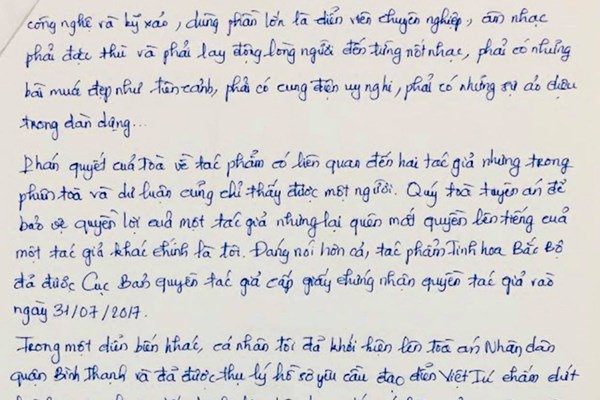 công nghệ và kỹ xảo, dùng phần lớn là diễn viên chuyên nghiệp, âm nhạc
phải đặc thù và phải lay động lòng người đến từng nốt nhạc, phải có những
bài múa đẹp như tiên cảnh, phải có cung điện uy nghi, phải có những sự ảo diệu
trong dàn dựng...
Phán quyết của Toà về tác phẩm có liên quan đến hai tác giả nhưng trong
phiên toà và dư luận cũng chỉ thấy được một người. Quý toà tuyên án để
bảo vệ quyền lợi của một tác giả nhưng lại quên mất quyền lên tiếng của
một tác giả khác chính là tôi. Đáng nói hơn cả, tác phẩm Tinh hoa Bắc Bộ
đã được Cục Bản quyền tác giả cấp giấy chứng nhận quyền tác giả vào
ngày 31/07/2017.
Trong một diễn biến khác, cá nhân tôi đã khởi kiện lên toà án Nhân dân
quận Bình Thạnh và đã được thụ lý hồ sơ yêu cầu đạo diễn Việt Tú chấm dứt